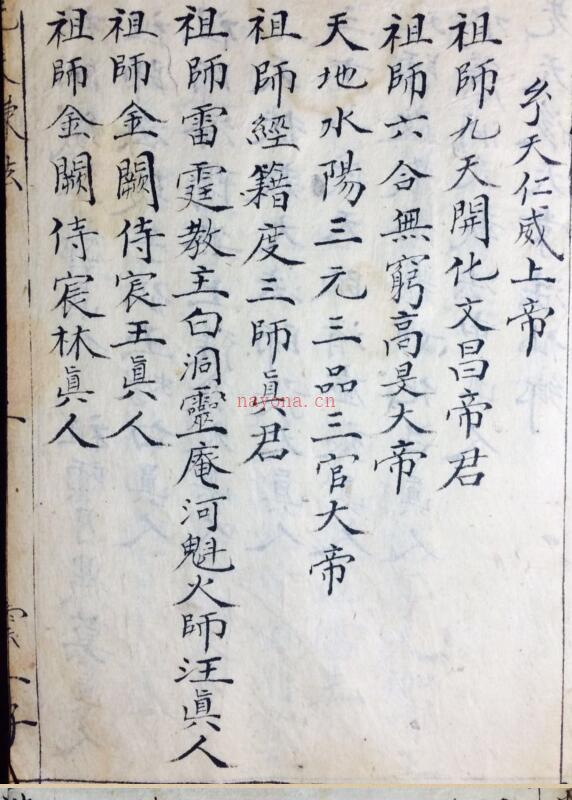 天仁威上帝
祖師九天開化文昌帝君
祖師六合無窮高旻大帝
天地水陽三元三品三官大帝
祖師經籍度三師真君
祖師雷霆教主白洞靈庵河魁火師汪眞人
祖師金闕侍宸王眞人
祖師金闕侍宸林眞人
nayona.cn